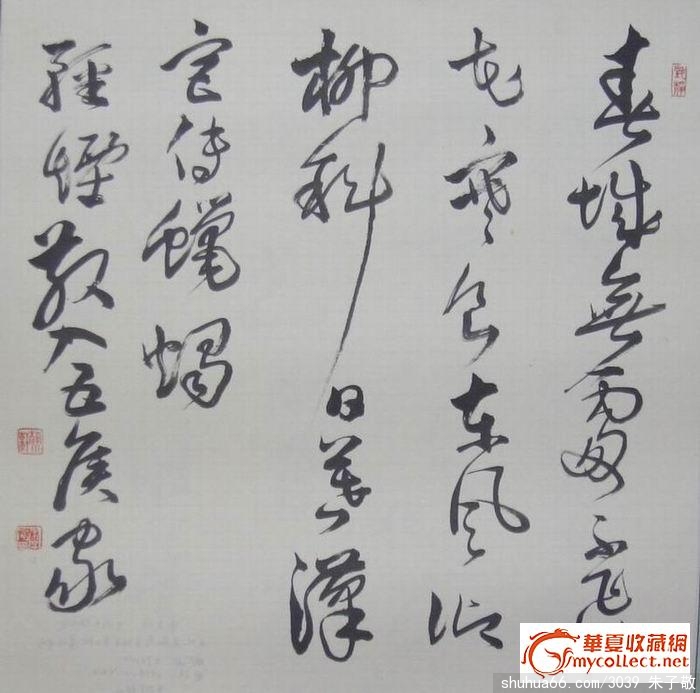 春城無處不飛
花寒食東風御
柳斜日暮漢
宮傳蠟燭
輕煙散入五侯家
華夏收藏網
mycollect.net
shuhua66.com/3039 朱子敬